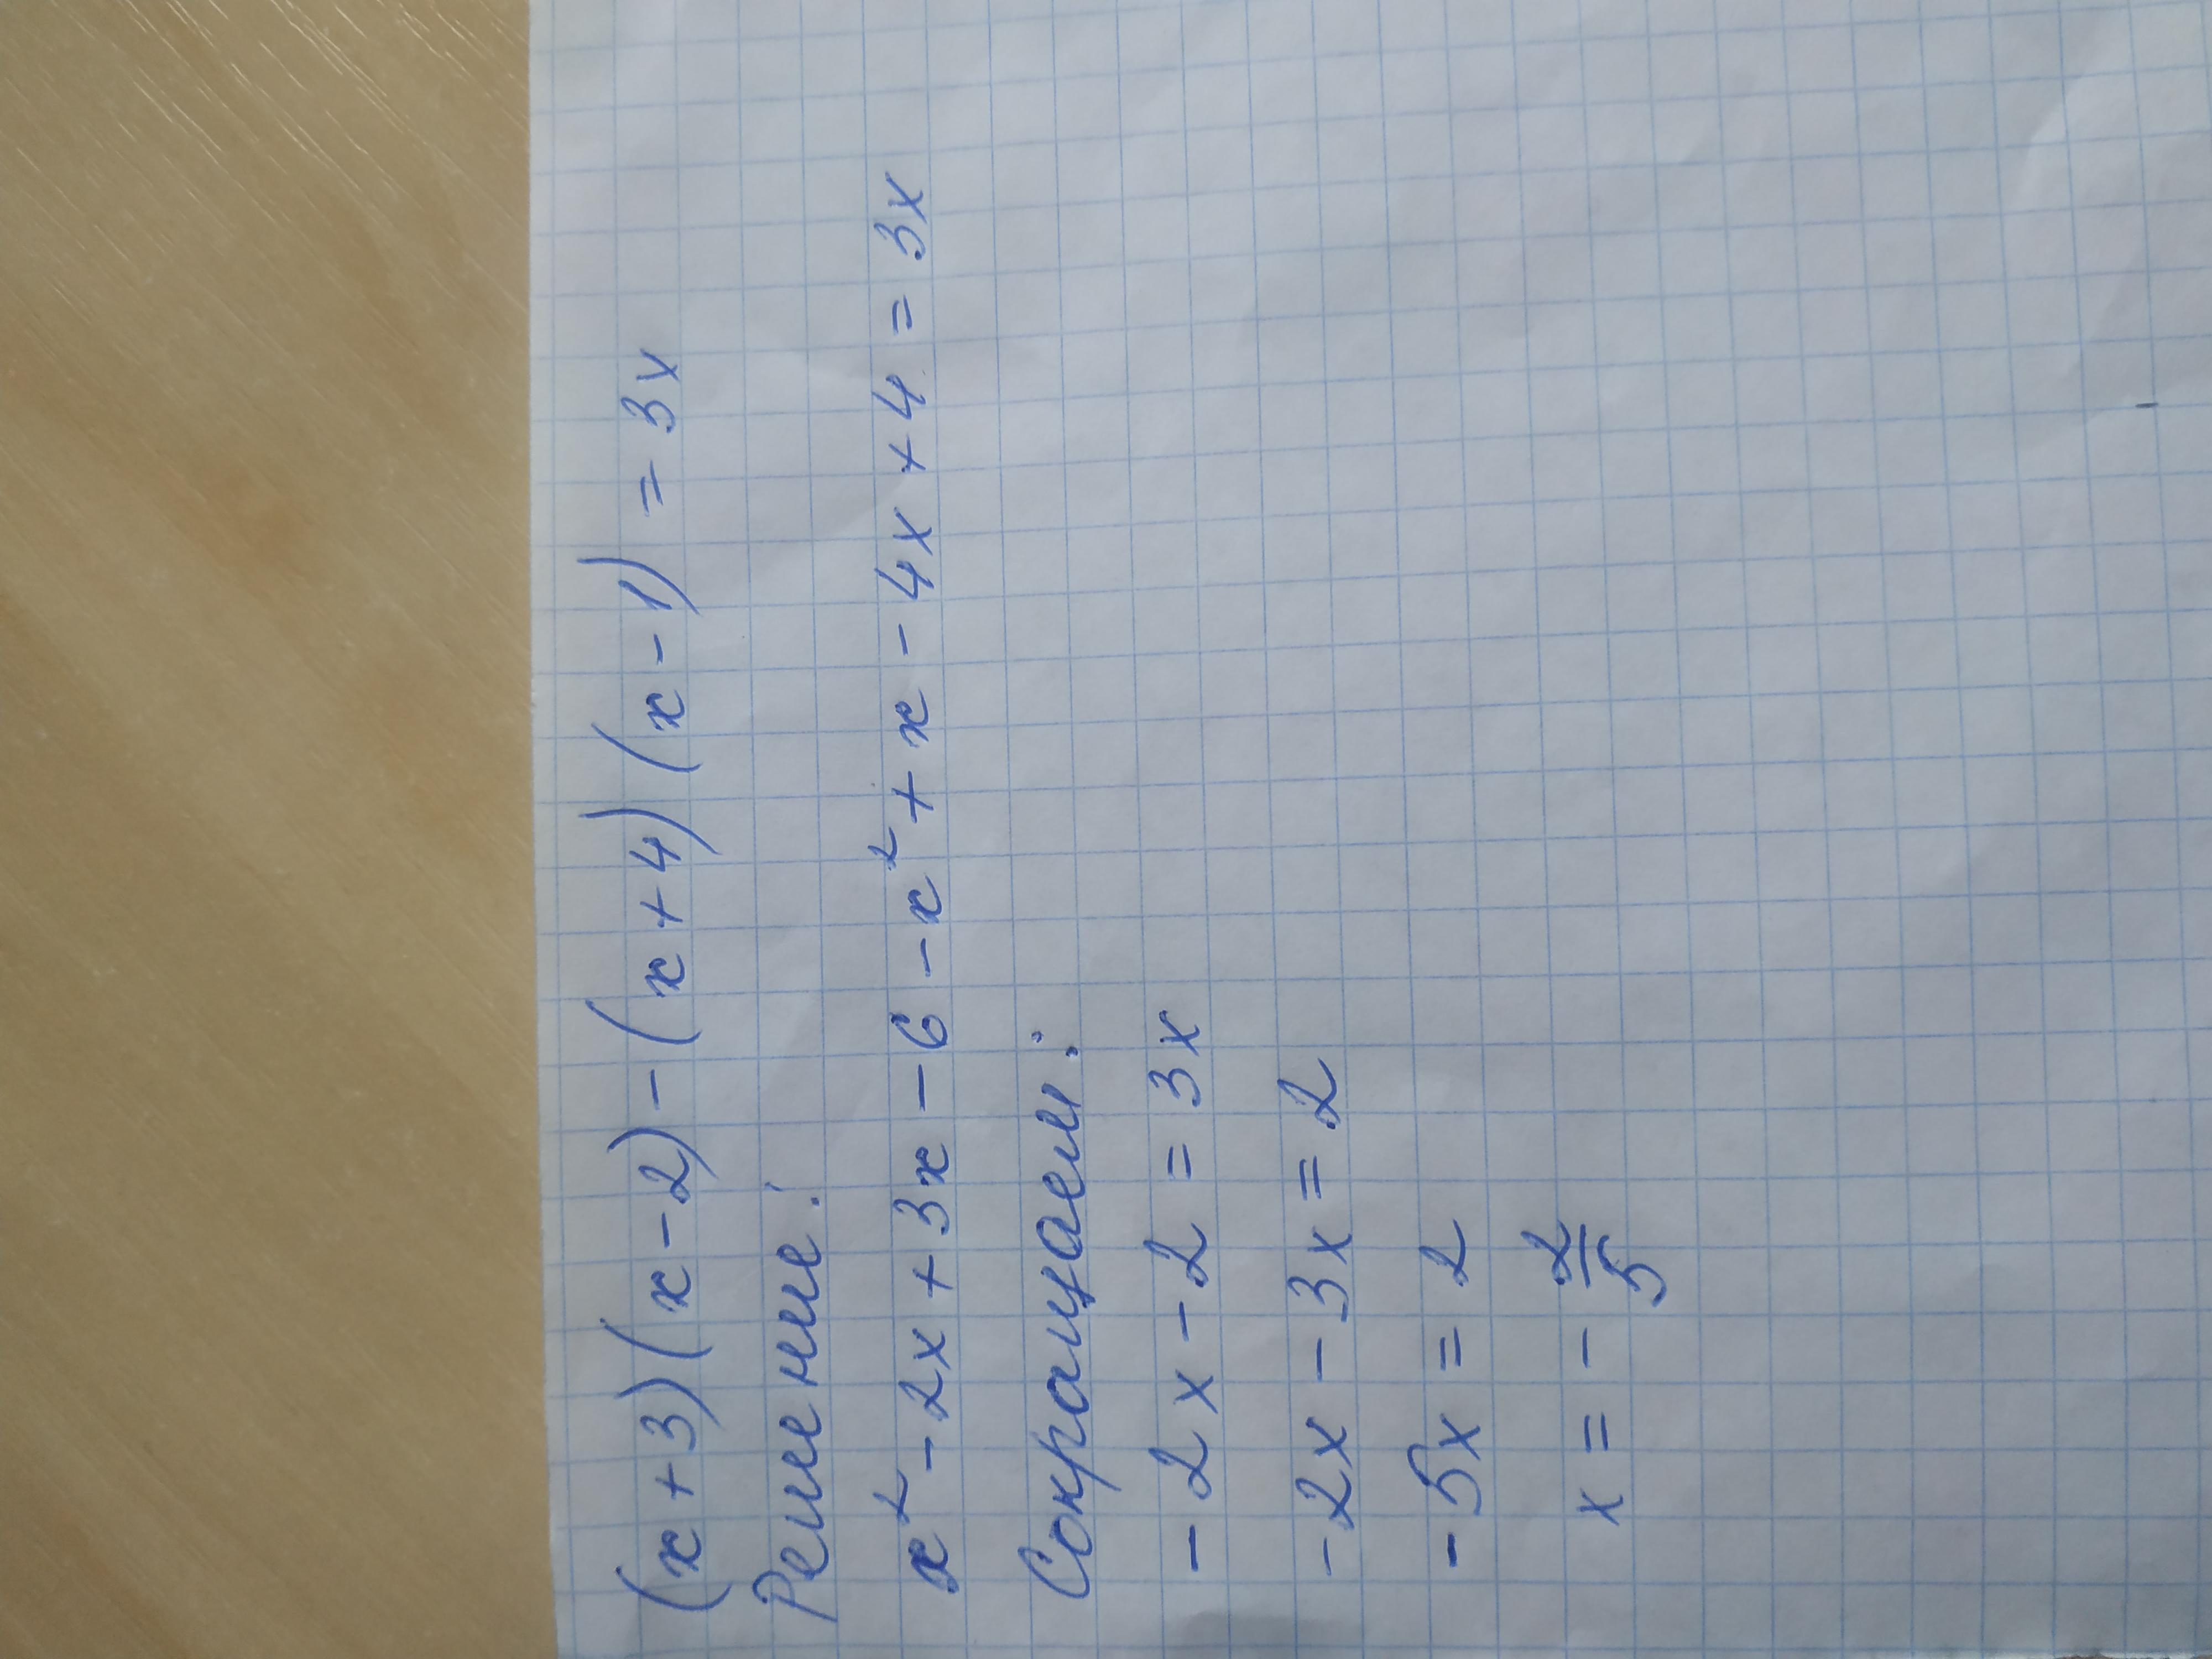 (x+3)(x-2)-(x+4)(x-1)=3x
Решение:
x²-2x+3x-6-x²+x-4x+4=3x
Сокращаем:
-2x-2=3x
-2x-3x=2
-5x=2
x=-2/5